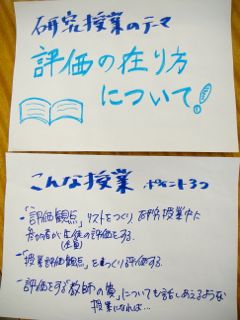 研究授業のテーマ
評価の在り方
について!
こんな授業 ポイント3つ
・「評価観点」リストをつくり、研究授業中に
参加者が生徒の評価をする。
(全員)
・「授業評価観点」をつくり評価する。
・評価をする「教師の質」についても話しあえるような
授業になれば…